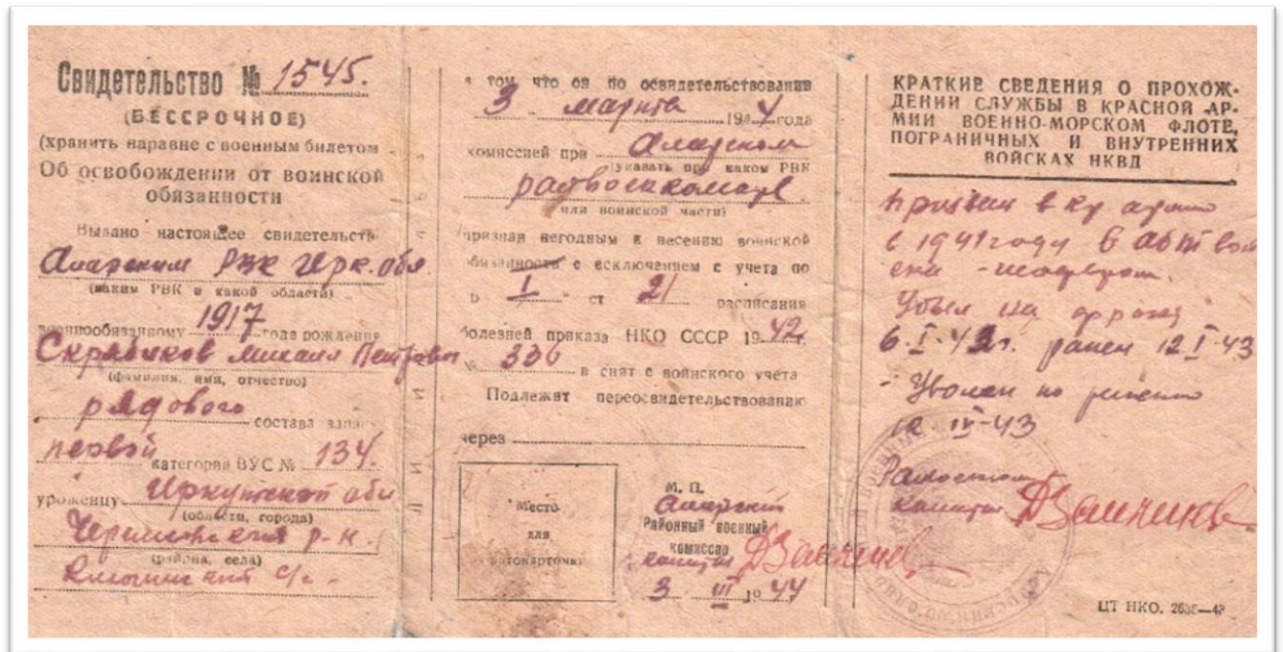 Свидетельство № 1545.
(БЕССРОЧНОЕ)
(хранить наравне с военным билетом
Об освобождении от воинской
обязанности
Выдано настоящее свидетельств
Аларским РВК Ирк. обл.
(каким РВК и какой области)
военнообязанному 1917 года рождения
Скрябиков Михаил Петрович
(фамилия, имя, отчество)
рядового состава запаса
первой категории ВУС № 134.
уроженцу Иркутской обл
(области, города)
Черемховский р-н.
(района, села)
с/с.
в том что он по освидетельствовании
3 марта 1944 года
комиссией при Аларском
(указать при каком РВК
райвоенкомате
или воинской части)
признан негодным к несению воинской
обязанности с исключением с учета по
I ст 21 расписания
болезней приказа НКО СССР 1942 г.
№ 336 и снят с воинского учета
Подлежит переосвидетельствованию
через
Место
для
фотокарточки
М. П.
Аларский
Районный военный
комиссар
капитан
3 VI 1944
КРАТКИЕ СВЕДЕНИЯ О ПРОХОЖ-
ДЕНИИ СЛУЖБЫ В КРАСНОЙ АР-
МИИ ВОЕННО-МОРСКОМ ФЛОТЕ,
ПОГРАНИЧНЫХ И ВНУТРЕННИХ
ВОЙСКАХ НКВД
Призван в кр армию
с 1941 году в
шофером.
Убыл на фронт
6.I.42г. ранен 12.I.43
- Уволен по ранению
IV-43
капитан
ЦТ НКО. 2635—43